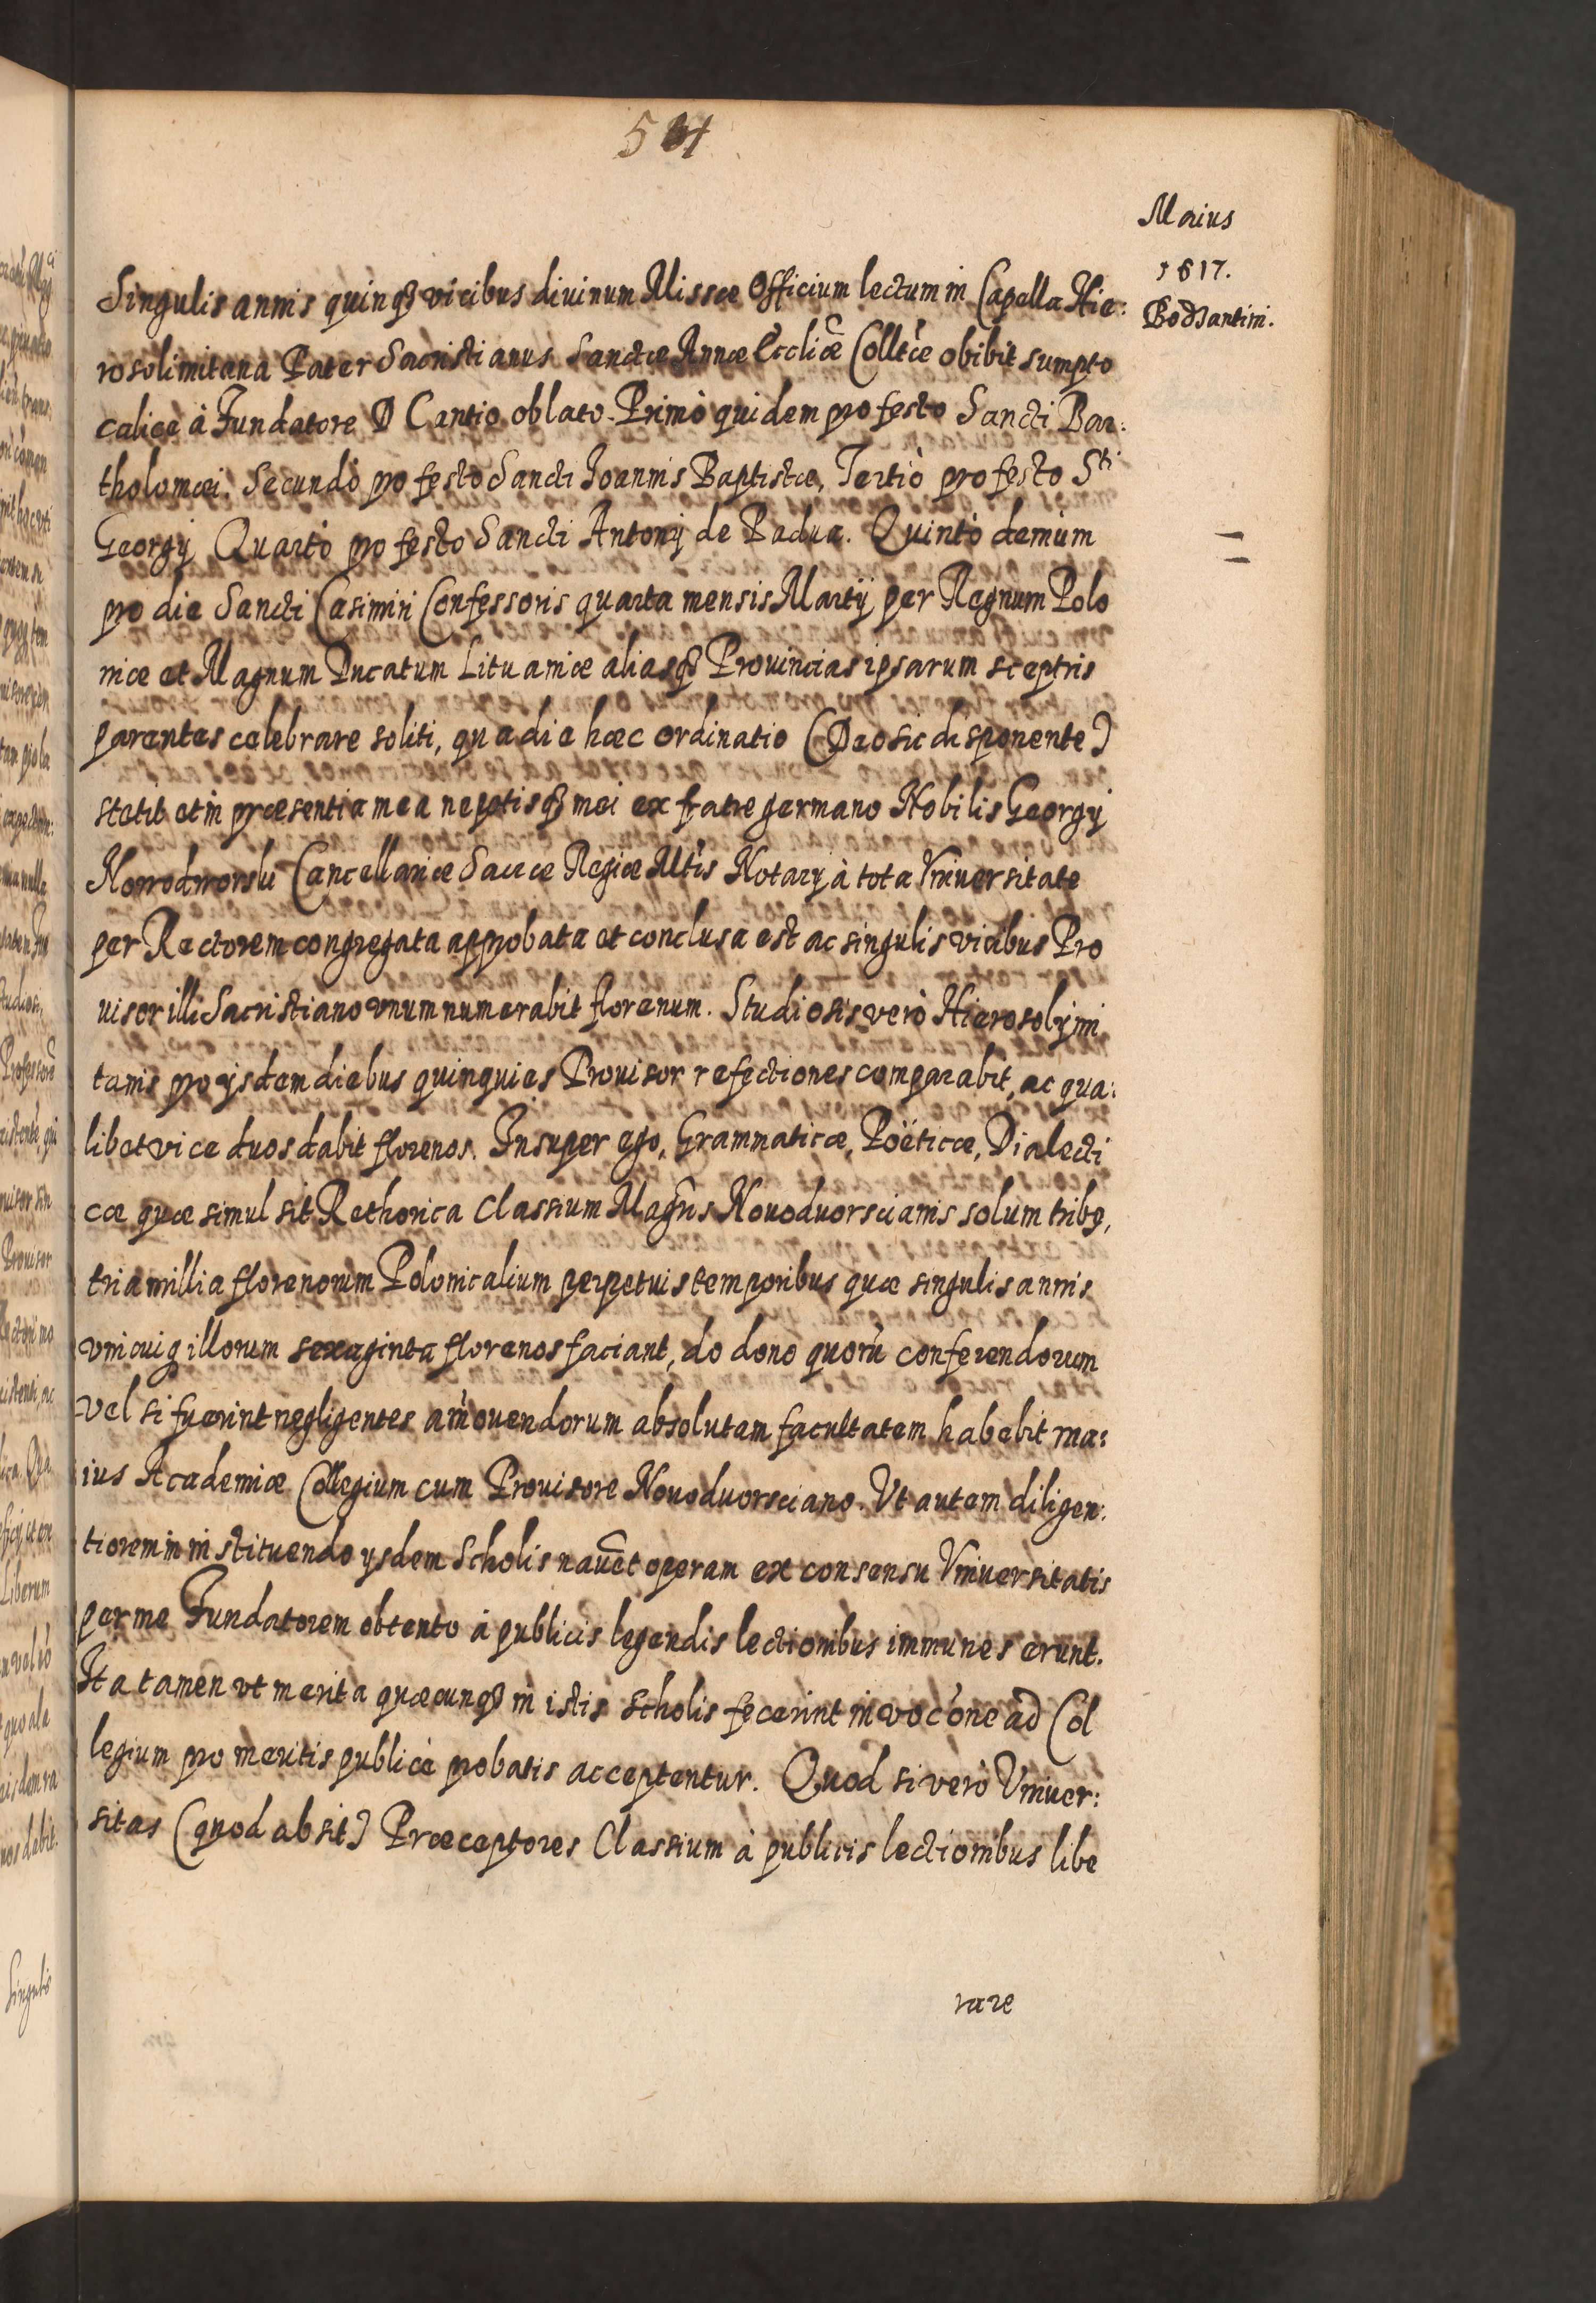 Maius
1617.
Bodzantini.
Singulis annis quinq3 vicibus diuinum Missæ Officium lectum in Capella Hie:
rosolimitana Pater Sacristianus Sanctæ Annæ Ecclĩæ Collt̃æ obibit sumpto
calice à Fundatore D Cantio oblato. Primò quidem pro festo Sancti Bar:
tholomæi. Secundò pro festo Sancti Joannis Baptistæ, Tertiò pro festo Sti
Georgÿ Quartò pro festo Sancti Antonÿ de Padua. Quintò demùm
pro die Sancti Casimiri Confessoris quarta mensis Martÿ per Regnum Polo
niæ et Magnum Ducatum Lituaniæ aliasq3 Prouincias ipsarum sceptris
parentes celebrare soliti, qua die hæc ordinatio (Deo sic disponente)
stetit et in præsentia mea nepotisq3 mei ex fratre germano Nobilis Georgÿ
Nowodworski Cancellariæ Sacræ Regiæ Mt̃is Notarÿ à tota Vniuersitate
per Rectorem congregata approbata et conclusa est ac singulis vicibus Pro
uisor illi Sacristiano vnum numerabit florenum. Studiosis verò Hierosolymi
tanis pro ÿsdem diebus quinquies Prouisor refectiones comparabit, ac qua:
libet vice duos dabit florenos. Insuper ego, Grammaticæ, Poëticæ, Dialecti
cæ quæ simul sit Rethorica Classium Magr̃is Nouoduorscianis solum tribq,
tria millia florenorum Polonicalium perpetuis temporibus quæ singulis annis
vnicuiq illorum sexaginta florenos faciant, do dono quorũ conferendorum
vel si fuerint negligentes am̃ouendorum absolutam facultatem habebit ma:
ius Academiæ Collegium cum Prouisore Nouoduorsciano. Vt autem diligen:
tiorem in instituendo ysdem Scholis nauẽt operam ex consensu Vniuersitatis
per me Fundatorem obtento à publicis legendis lectionibus immunes erunt.
Ita tamen vt merita quæcunq3 in istis scholis fecerint in vocõne ad Col
legium pro meritis publicè probatis acceptentur. Quod si verò Vniuer:
sitas (quod absit) Præceptores Classium à publicis lectionibus libe
rare